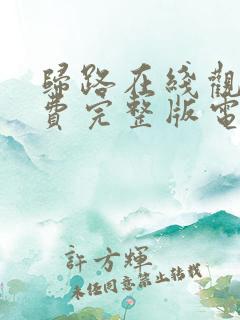 歸路在綫觀
費完整版電
許方輝
未経同意禁止轉載